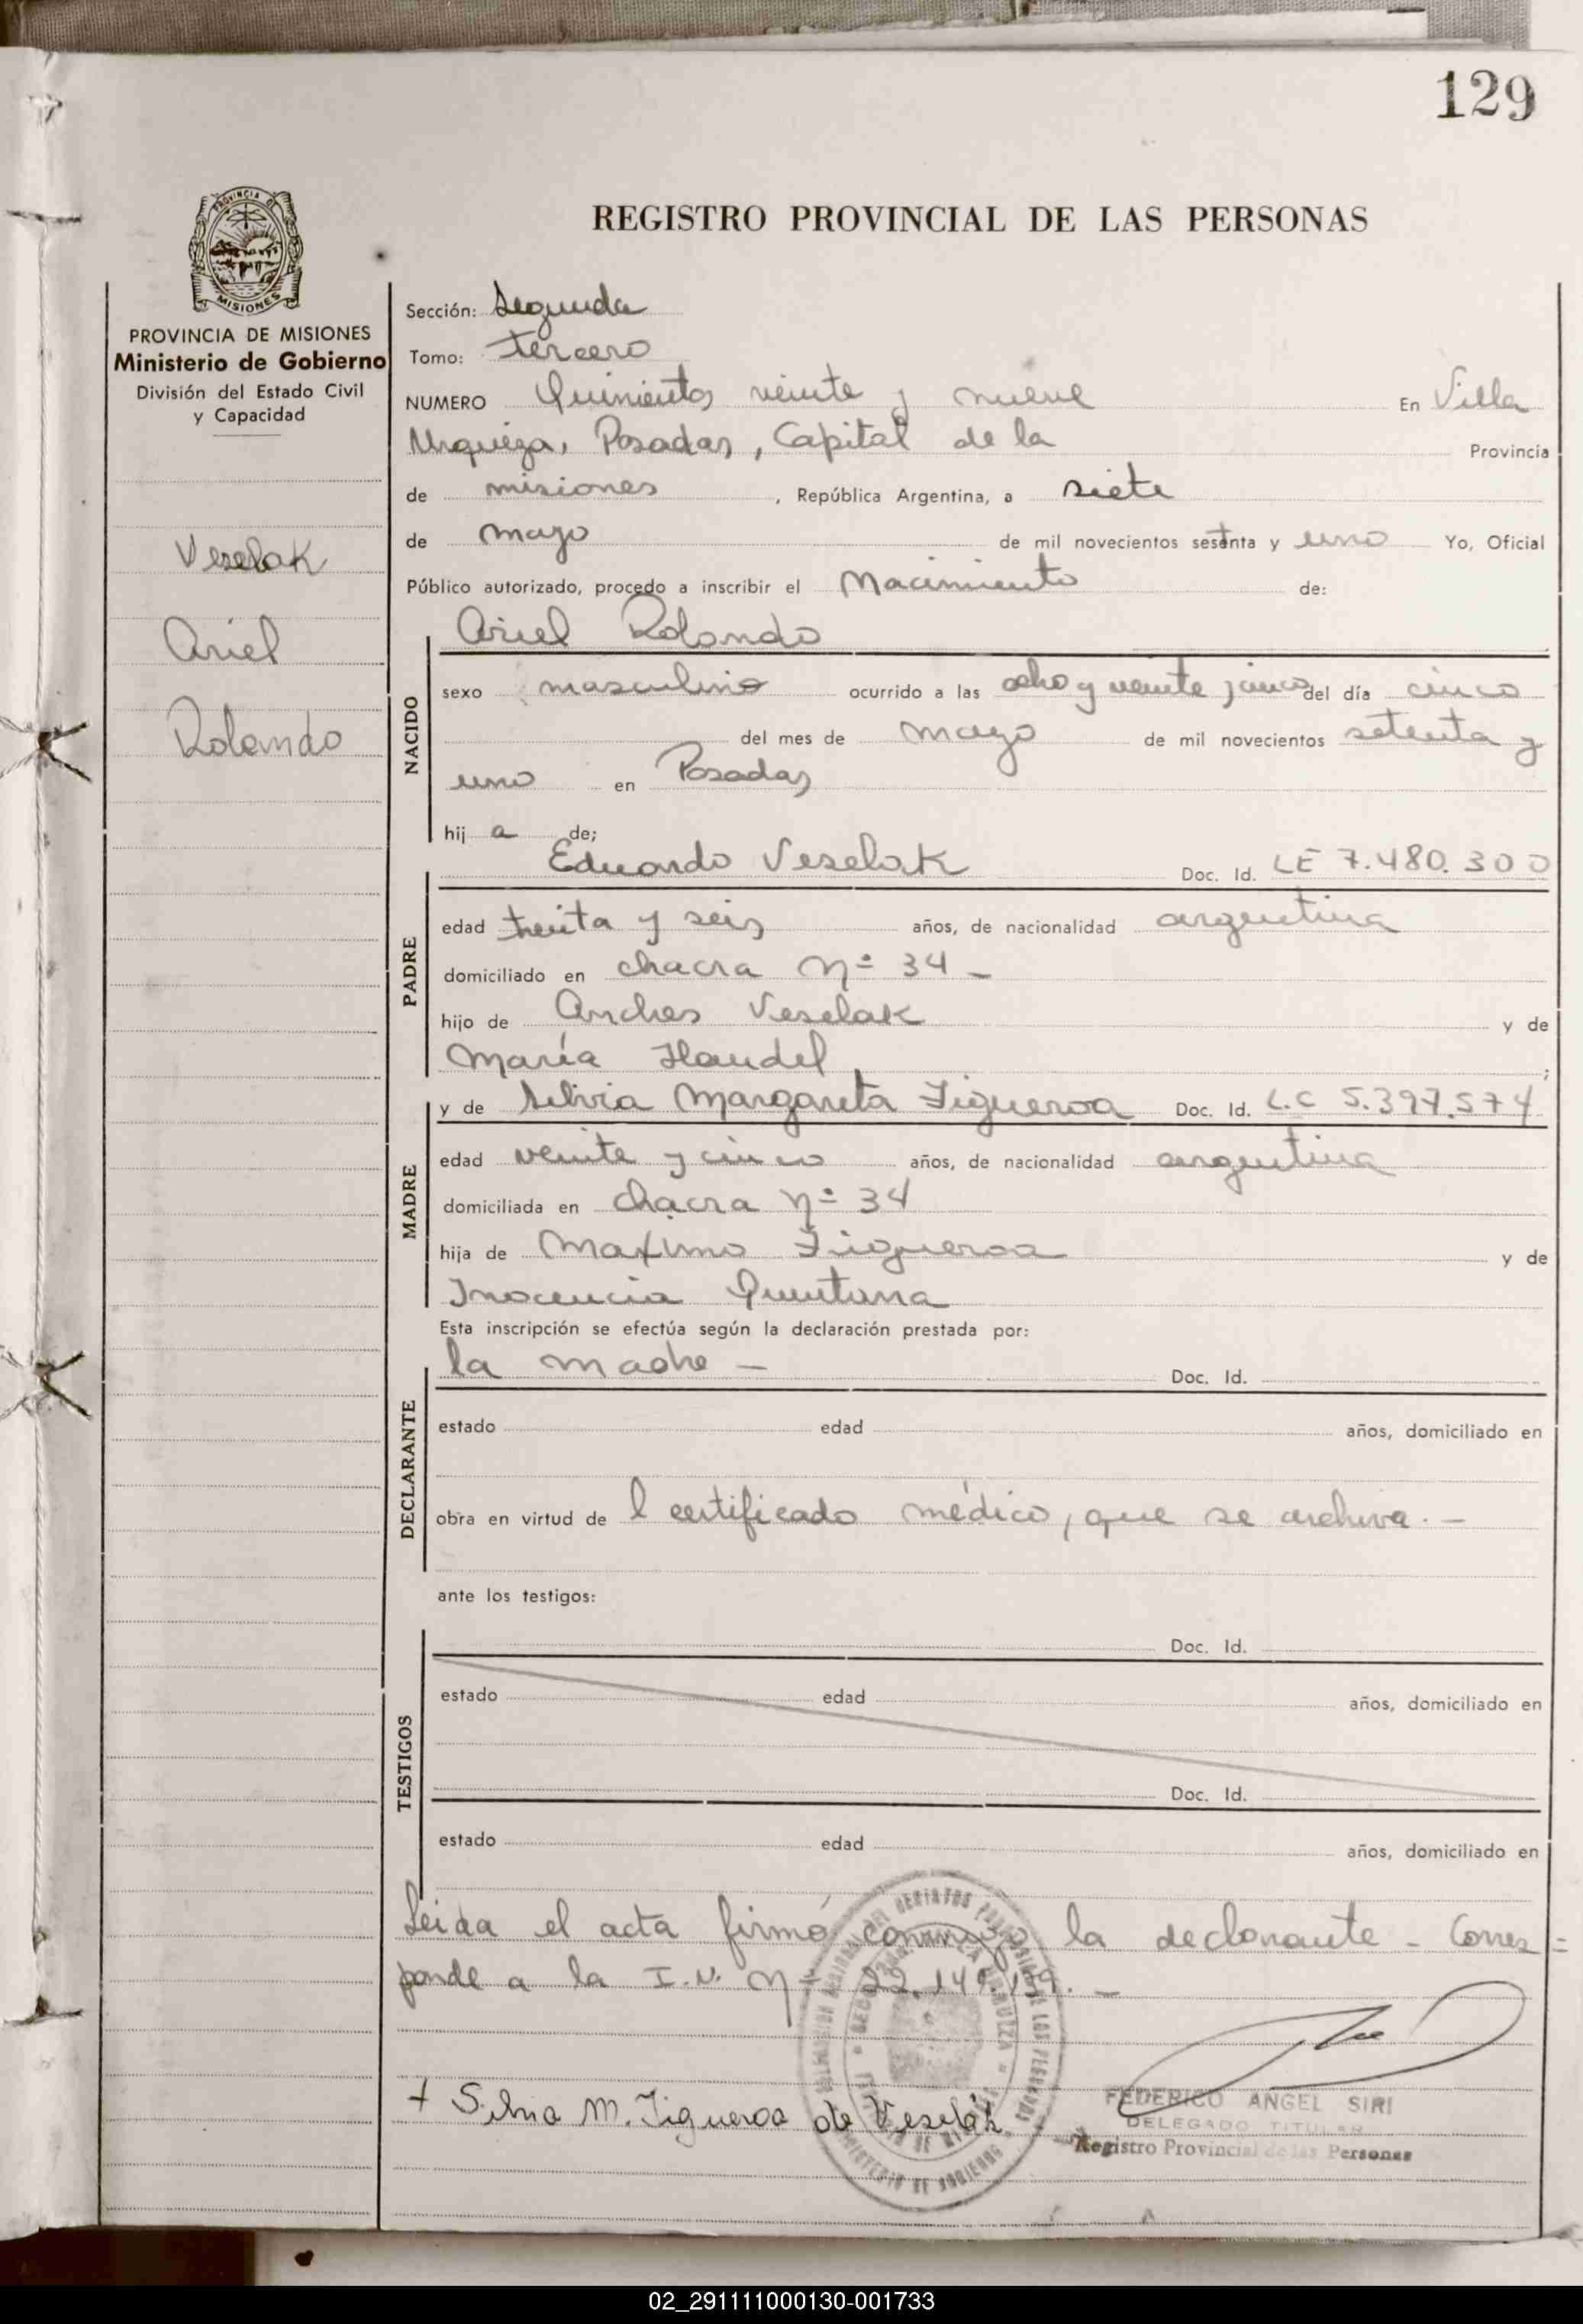 129
REGISTRO PROVINCIAL DE LAS PERSONAS
PROVINCIA DE
MISIONES
PROVINCIA DE MISIONES
Ministerio de Gobierno
División del Estado Civil
y Capacidad
Veselak
Ariel
Rolando
Sección: Segunda
Tomo: tercero
NUMERO Quinientos veinte y nueve En Villa
Urquiza, Posadas, Capital de la Provincia
de misiones, República Argentina, a siete
de mayo de mil novecientos setenta y uno Yo, Oficial
Público autorizado, procedo a inscribir el Nacimiento de:
Ariel Rolando
NACIDO
sexo masculino ocurrido a las ocho y veinte y cinco del día cinco
del mes de mayo de mil novecientos setenta y
uno en Posadas
hij a de;
PADRE
Eduardo Veselak Doc. Id. LE 7.480.300
edad treita y seis años, de nacionalidad argentina
domiciliado en chacra Nº 34 -
hijo de Andres Veselak y de
María Handel;
MADRE
y de Silvia Margarita Figueroa Doc. Id. L.C 5.397.574
edad veinte y cinco años, de nacionalidad argentina
domiciliada en chacra Nº 34
hija de Maximo Figueroa y de
Inocencia Quintana
Esta inscripción se efectúa según la declaración prestada por:
DECLARANTE
la madre - Doc. Id.
estado edad años, domiciliado en
obra en virtud de l certificado médico, que se archiva. -
ante los testigos:
TESTIGOS
Doc. Id.
estado edad años, domiciliado en
Doc. Id.
estado edad años, domiciliado en
Leida el acta firmó conmigo la declarante - Corres=
ponde a la I.N. Nº 22.149.159. -
+ Silvia M. Figueroa de Veselak
FEDERICO ANGEL SIRI
DELEGADO TITULAR
Registro Provincial de las Personas
02_291111000130-001733